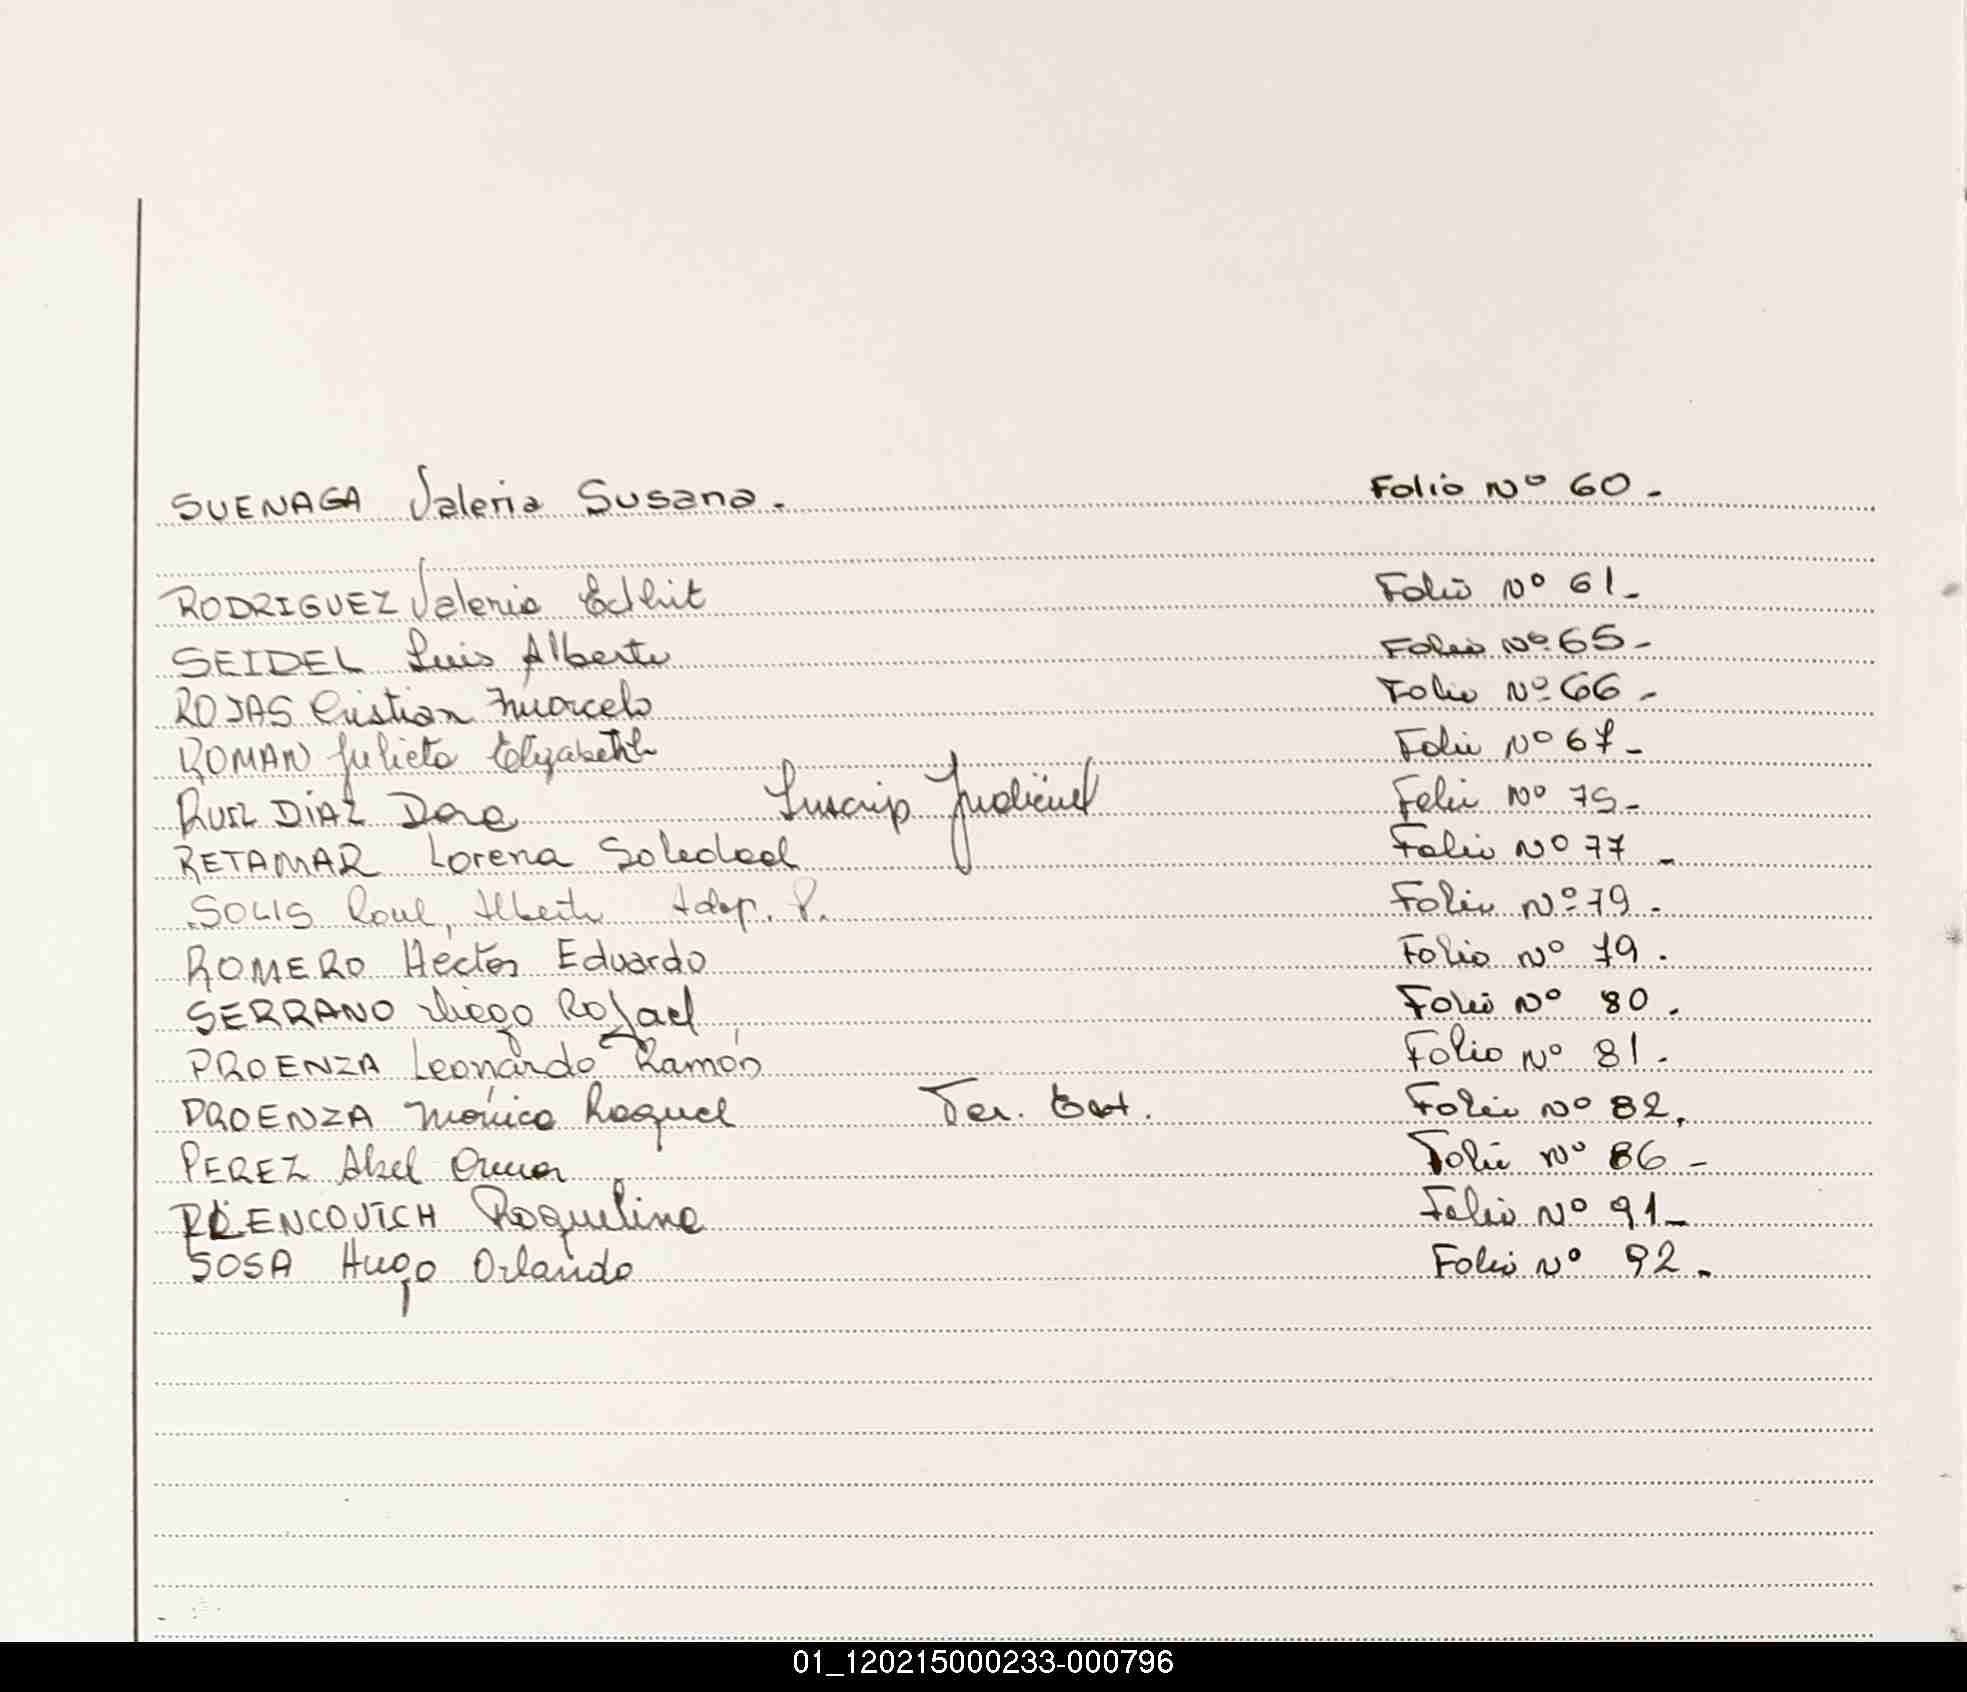 SUENAGA Valeria Susana. Folio Nº 60.-
RODRIGUEZ Valeria Edhit Folio Nº 61-
SEIDEL Luis Alberto Folio Nº 65-
ROJAS Cristian Marcelo Folio Nº 66-
ROMAN Julieta Elizabeth Folio Nº 67-
RUIZ DÍAZ Dora Inscrip Judicial Folio Nº 75-
RETAMAR Lorena Soledad Folio Nº 77-
SOLIS Raul, Alberto Adop. P. Folio Nº 79.
ROMERO Héctor Eduardo Folio Nº 79.
SERRANO Diego Rafael Folio Nº 80.
PROENZA Leonardo Ramón Folio Nº 81.
PROENZA Mónica Raquel Folio Nº 82.
PEREZ Abel Omar Folio Nº 86-
Roquelina Folio Nº 91-
SOSA Hugo Orlando Folio Nº 92.
01_120215000233-000796